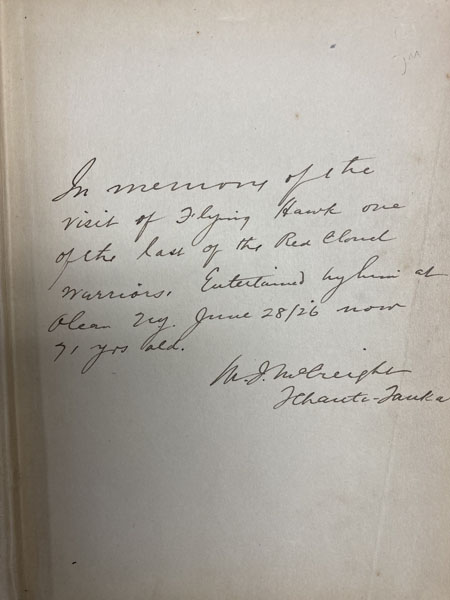 In memory of the
visit of Flying Hawk one
of the last of the Red Cloud
Warriors. Entertained by him at
Olean Ny. June 28/26 now
71 yrs old.
M. I. McCreight
Tchanta-Tanka